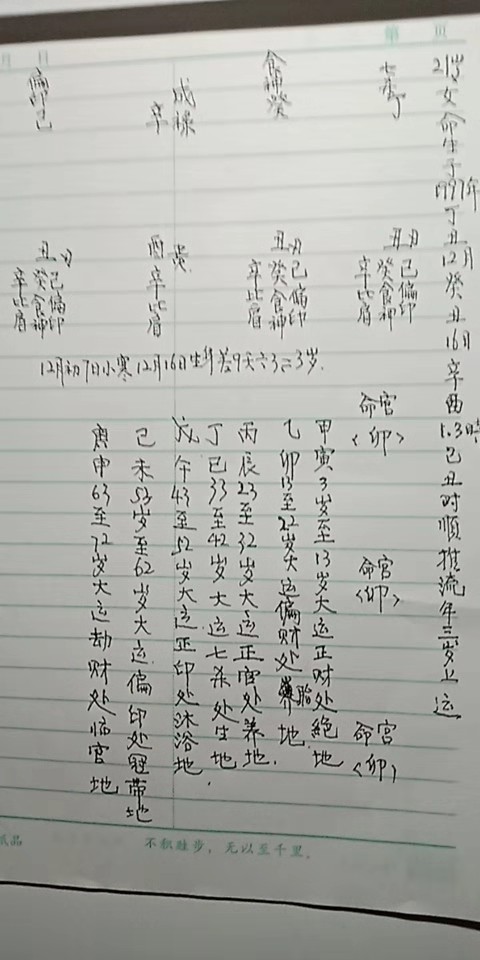 第 页
月 日
21岁女命生于1997年丁丑12月癸丑16日辛酉1.3時己丑时順推流年三岁上运
七杀丁
食神癸
戌禄辛
偏印己
丑月
己偏印
癸食神
辛比肩
丑月
己偏印
癸食神
辛比肩
酉
辛比肩
丑月
己偏印
癸食神
辛比肩
12月初7日小寒12月16日生年差9天六3=3岁.
命宫<卯>
命宫<卯>
命宫<卯>
甲寅3岁至13岁大运正财处絕地
乙卯13至22岁大运偏财处胎地.
丙辰23至32岁大运正官处养地.
丁巳33至42岁大运七杀处生地.
戊午43至52岁大运正印处沐浴地
己未53岁至62岁大运偏印处冠带地
庚申63至72岁大运劫财处临官地
纸品
不积跬步，无以至千里.